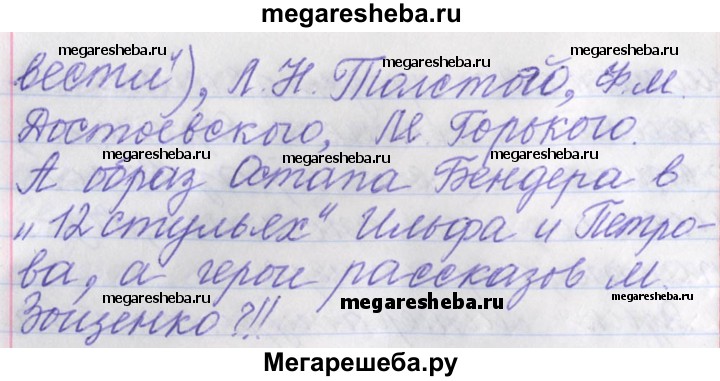 megaresheba.ru
megaresheba.ru megaresheba.ru
вести"), Л. Н. Толстой, Ф. М.
Достоевского, М. Горького.
megaresheba.ru megaresheba.ru
А образ Остапа Бендера в
„12 стульях" Ильфа и Петро-
ва, а герои рассказов М.
megaresheba.ru megaresheba.ru megaresheba.ru
Зощенко?!!
Мегарешеба.ру